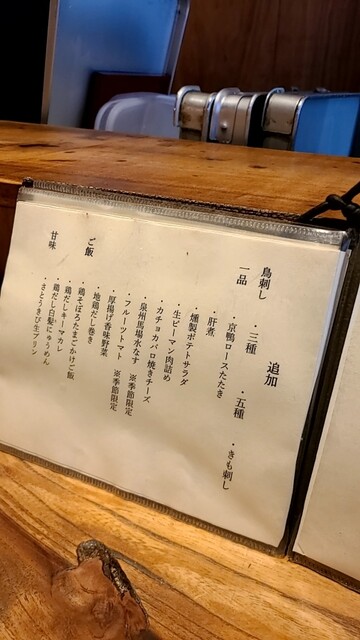 追加
鳥刺し ・三種 ・五種 ・きも刺し
一品 ・京鴨ロースたたき
・肝煮
・燻製ポテトサラダ
・生ピーマン肉詰め
・カチョカバロ焼きチーズ
・泉州馬場水なす ※季節限定
・フルーツトマト ※季節限定
・厚揚げ香味野菜
・地鶏だし巻き
ご飯 ・鶏そぼろたまごかけご飯
・鶏だしキーマカレー
・鶏だし白髪にゅうめん
甘味 ・さとうきび生プリン